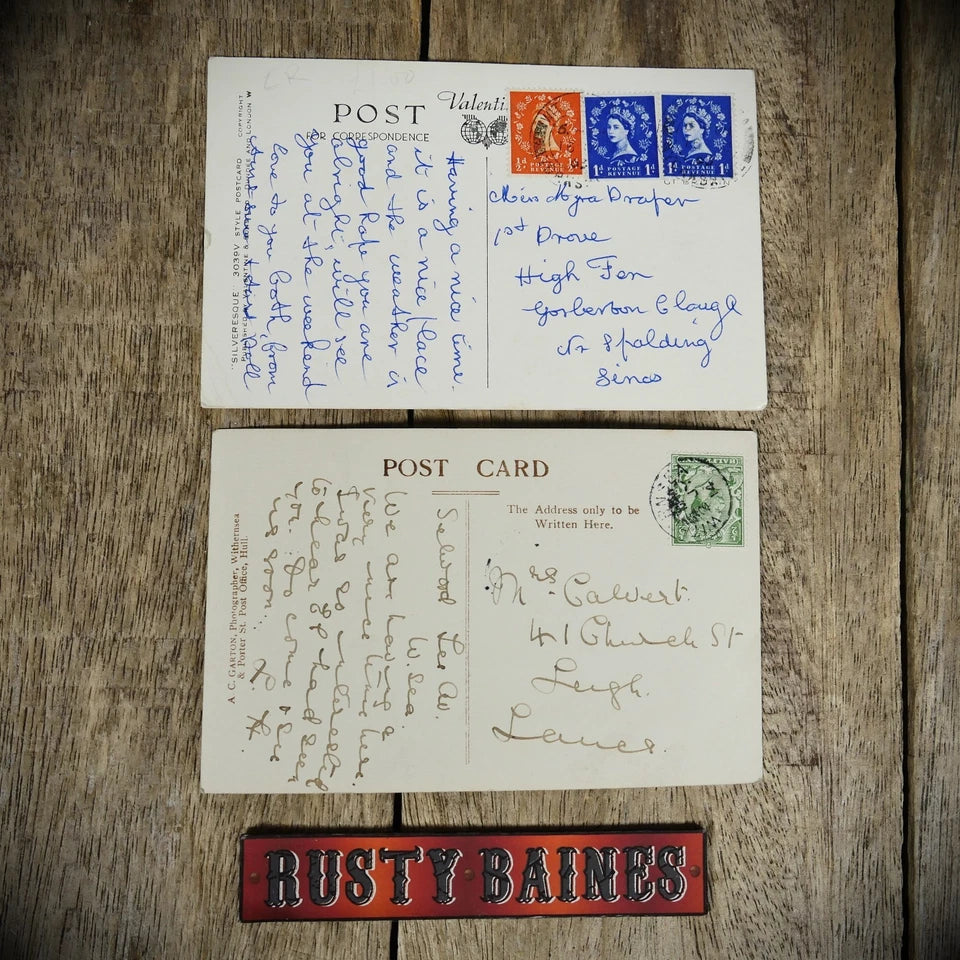 £1.00
POST
Valenti
FOR CORRESPONDENCE
"SILVERESQUE" 3039V STYLE POSTCARD COPYRIGHT
PUBLISHED BY VALENTINE & SONS LTD. DUNDEE AND LONDON W
Having a nice time.
it is a nice place
and the weather is
good hope you are
alright, will see
you at the weekend
love to you both from
½d ½d
POSTAGE
REVENUE
1d POSTAGE 1d
REVENUE
1d POSTAGE 1d
REVENUE
Miss Myra Draper
1st Drove
High Fen
Gosberton Claugh
Nr Spalding
Lincs
POST CARD
The Address only to be
Written Here.
A. C. GARTON, Photographer, Withernsea
& Porter St. Post Office, Hull.
W.Sea.
We are having a
very nice time here.
you. Do come & see
us soon.
Mrs. Calvert.
41 Church St
Leigh.
Lancs.
RUSTY·BAINES